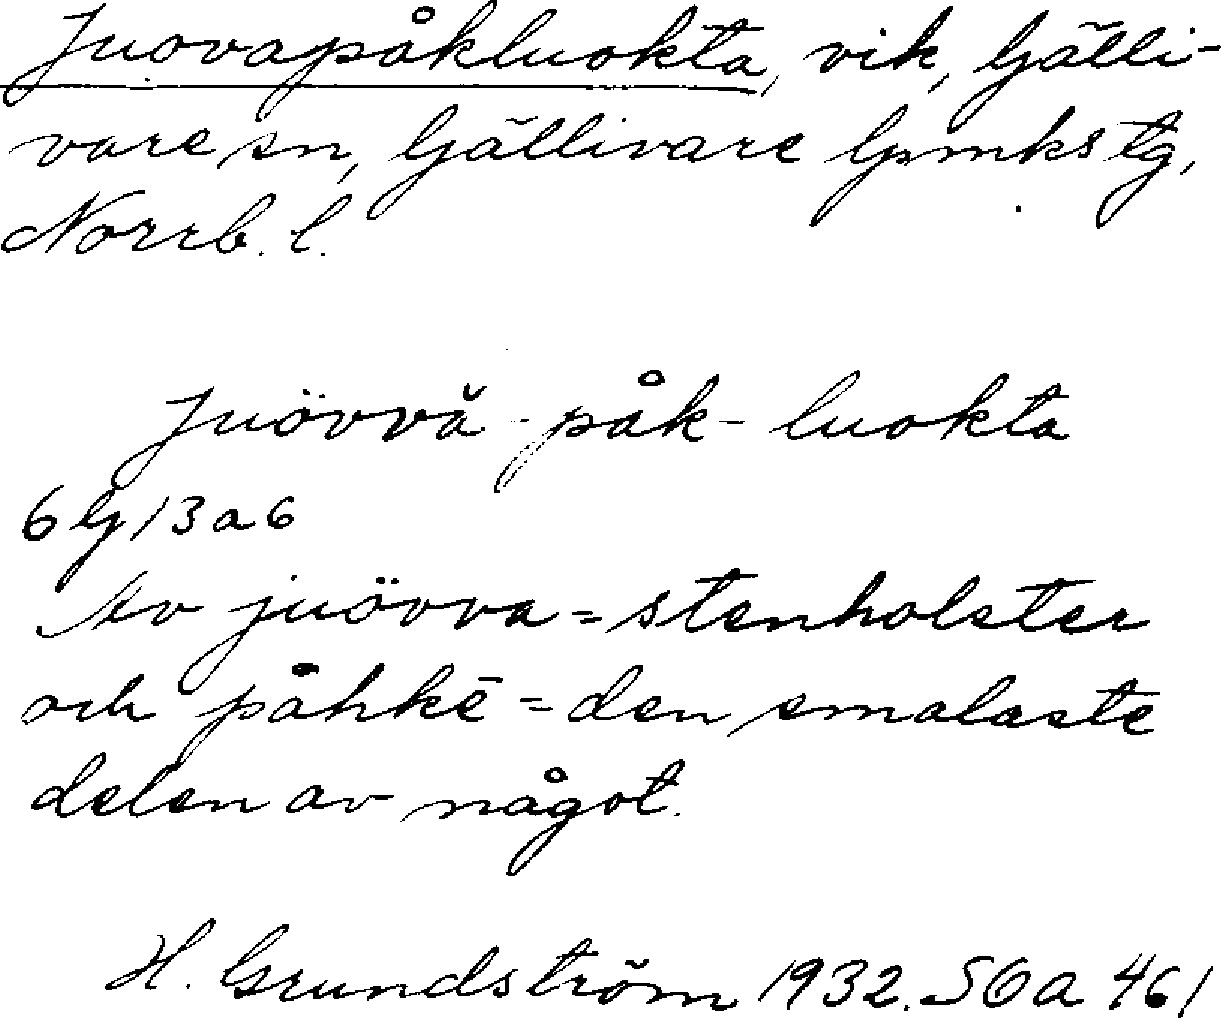 Juovapåkluokta, vik, Gälli-
vare sn, Gällivare lpmks tg,
Norrb. l.
juövvă - påk - luokta
6 G 13 a 6
Av juövva = stenholster
och påhkē = den smalaste
delen av något.
H. Grundström 1932. SOa 461